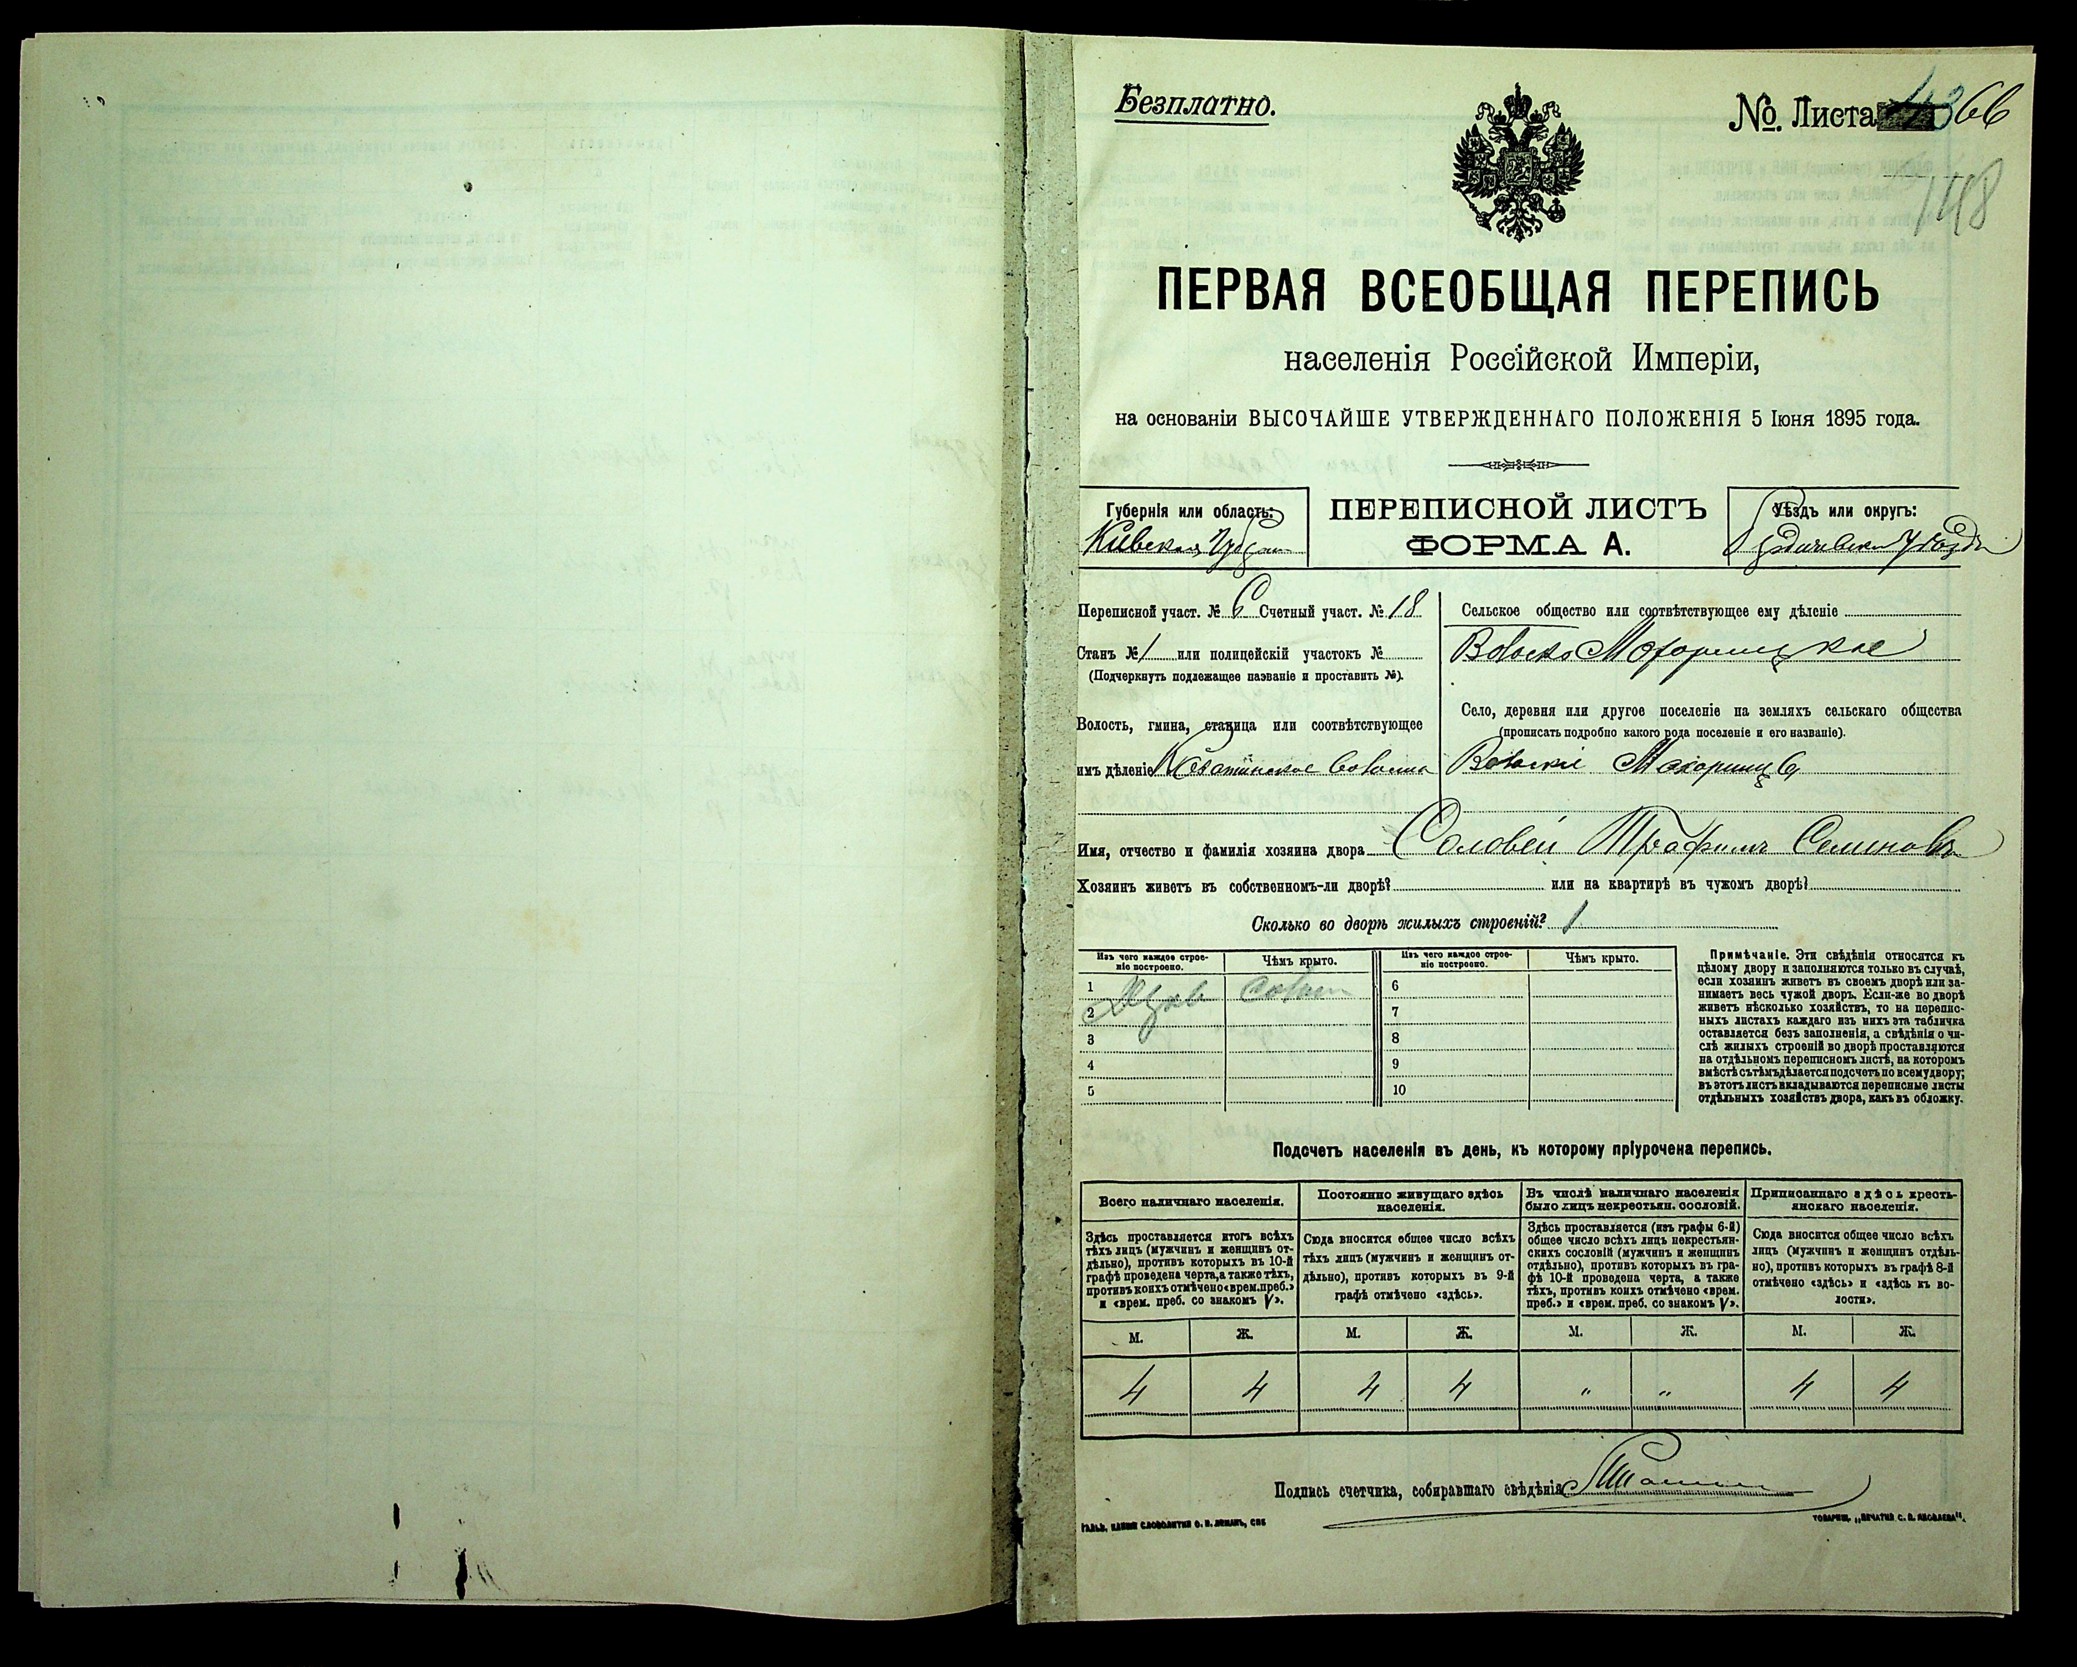 Безплатно.
№. Листа 66
148
ПЕРВАЯ ВСЕОБЩАЯ ПЕРЕПИСЬ
населенія Россійской Имперіи,
на основаніи ВЫСОЧАЙШЕ УТВЕРЖДЕННАГО ПОЛОЖЕНІЯ 5 Іюня 1895 года.
Губернія или область:
Кіевская
ПЕРЕПИСНОЙ ЛИСТЪ
ФОРМА А.
Уѣздъ или округъ:
Переписной участ. № 6 Счетный участ. № 18
Станъ № 1 или полицейскій участокъ №
(Подчеркнуть подлежащее названіе и проставить №).
Волость, гмина, станица или соотвѣтствующее
имъ дѣленіе
Сельское общество или соотвѣтствующее ему дѣленіе
Село, деревня или другое поселеніе на земляхъ сельскаго общества
(прописать подробно какого рода поселеніе и его названіе).
Махоринцы
Имя, отчество и фамилія хозяина двора Соловей Трофимъ Семеновъ
Хозяинъ живетъ въ собственномъ-ли дворѣ? или на квартирѣ въ чужомъ дворѣ?
Сколько во дворѣ жилыхъ строеній? 1
Изъ чего каждое строе-
ніе построено.
Чѣмъ крыто.
Изъ чего каждое строе-
ніе построено.
Чѣмъ крыто.
1 6
2 7
3 8
4 9
5 10
Примѣчаніе. Эти свѣдѣнія относятся къ
цѣлому двору и заполняются только въ случаѣ,
если хозяинъ живетъ въ своемъ дворѣ или за-
нимаетъ весь чужой дворъ. Если-же во дворѣ
живетъ нѣсколько хозяйствъ, то на перепис-
ныхъ листахъ каждаго изъ нихъ эта табличка
оставляется безъ заполненія, а свѣдѣнія о чи-
слѣ жилыхъ строеній во дворѣ проставляются
на отдѣльномъ переписномъ листѣ, на которомъ
вмѣстѣ съ тѣмъ дѣлается подсчетъ по всему двору;
въ этотъ листъ вкладываются переписные листы
отдѣльныхъ хозяйствъ двора, какъ въ обложку.
Подсчетъ населенія въ день, къ которому пріурочена перепись.
Всего наличнаго населенія.
Здѣсь проставляется итогъ всѣхъ
тѣхъ лицъ (мужчинъ и женщинъ от-
дѣльно), противъ которыхъ въ 10-й
графѣ проведена черта, а также тѣхъ,
противъ коихъ отмѣчено «врем. преб.»
и «врем. преб. со знакомъ V».
Постоянно живущаго здѣсь
населенія.
Сюда вносится общее число всѣхъ
тѣхъ лицъ (мужчинъ и женщинъ от-
дѣльно), противъ которыхъ въ 9-й
графѣ отмѣчено «здѣсь».
Въ числѣ наличнаго населенія
было лицъ некрестьян. сословій.
Здѣсь проставляется (изъ графы 6-й)
общее число всѣхъ лицъ некрестьян-
скихъ сословій (мужчинъ и женщинъ
отдѣльно), противъ которыхъ въ гра-
фѣ 10-й проведена черта, а также
тѣхъ, противъ коихъ отмѣчено «врем.
преб.» и «врем. преб. со знакомъ V».
Приписаннаго здѣсь кресть-
янскаго населенія.
Сюда вносится общее число всѣхъ
лицъ (мужчинъ и женщинъ отдѣль-
но), противъ которыхъ въ графѣ 8-й
отмѣчено «здѣсь» и «здѣсь къ во-
лости».
М. Ж. М. Ж. М. Ж. М. Ж.
4 4 4 4 " " 4 4
Подпись счетчика, собиравшаго свѣдѣнія
ГАЛЬВ. КЛИШЕ СЛОВОЛИТНИ О. И. ЛЕМАНЪ, СПБ
ТОВАРИЩ. „ПЕЧАТНЯ С. П. ЯКОВЛЕВА“.